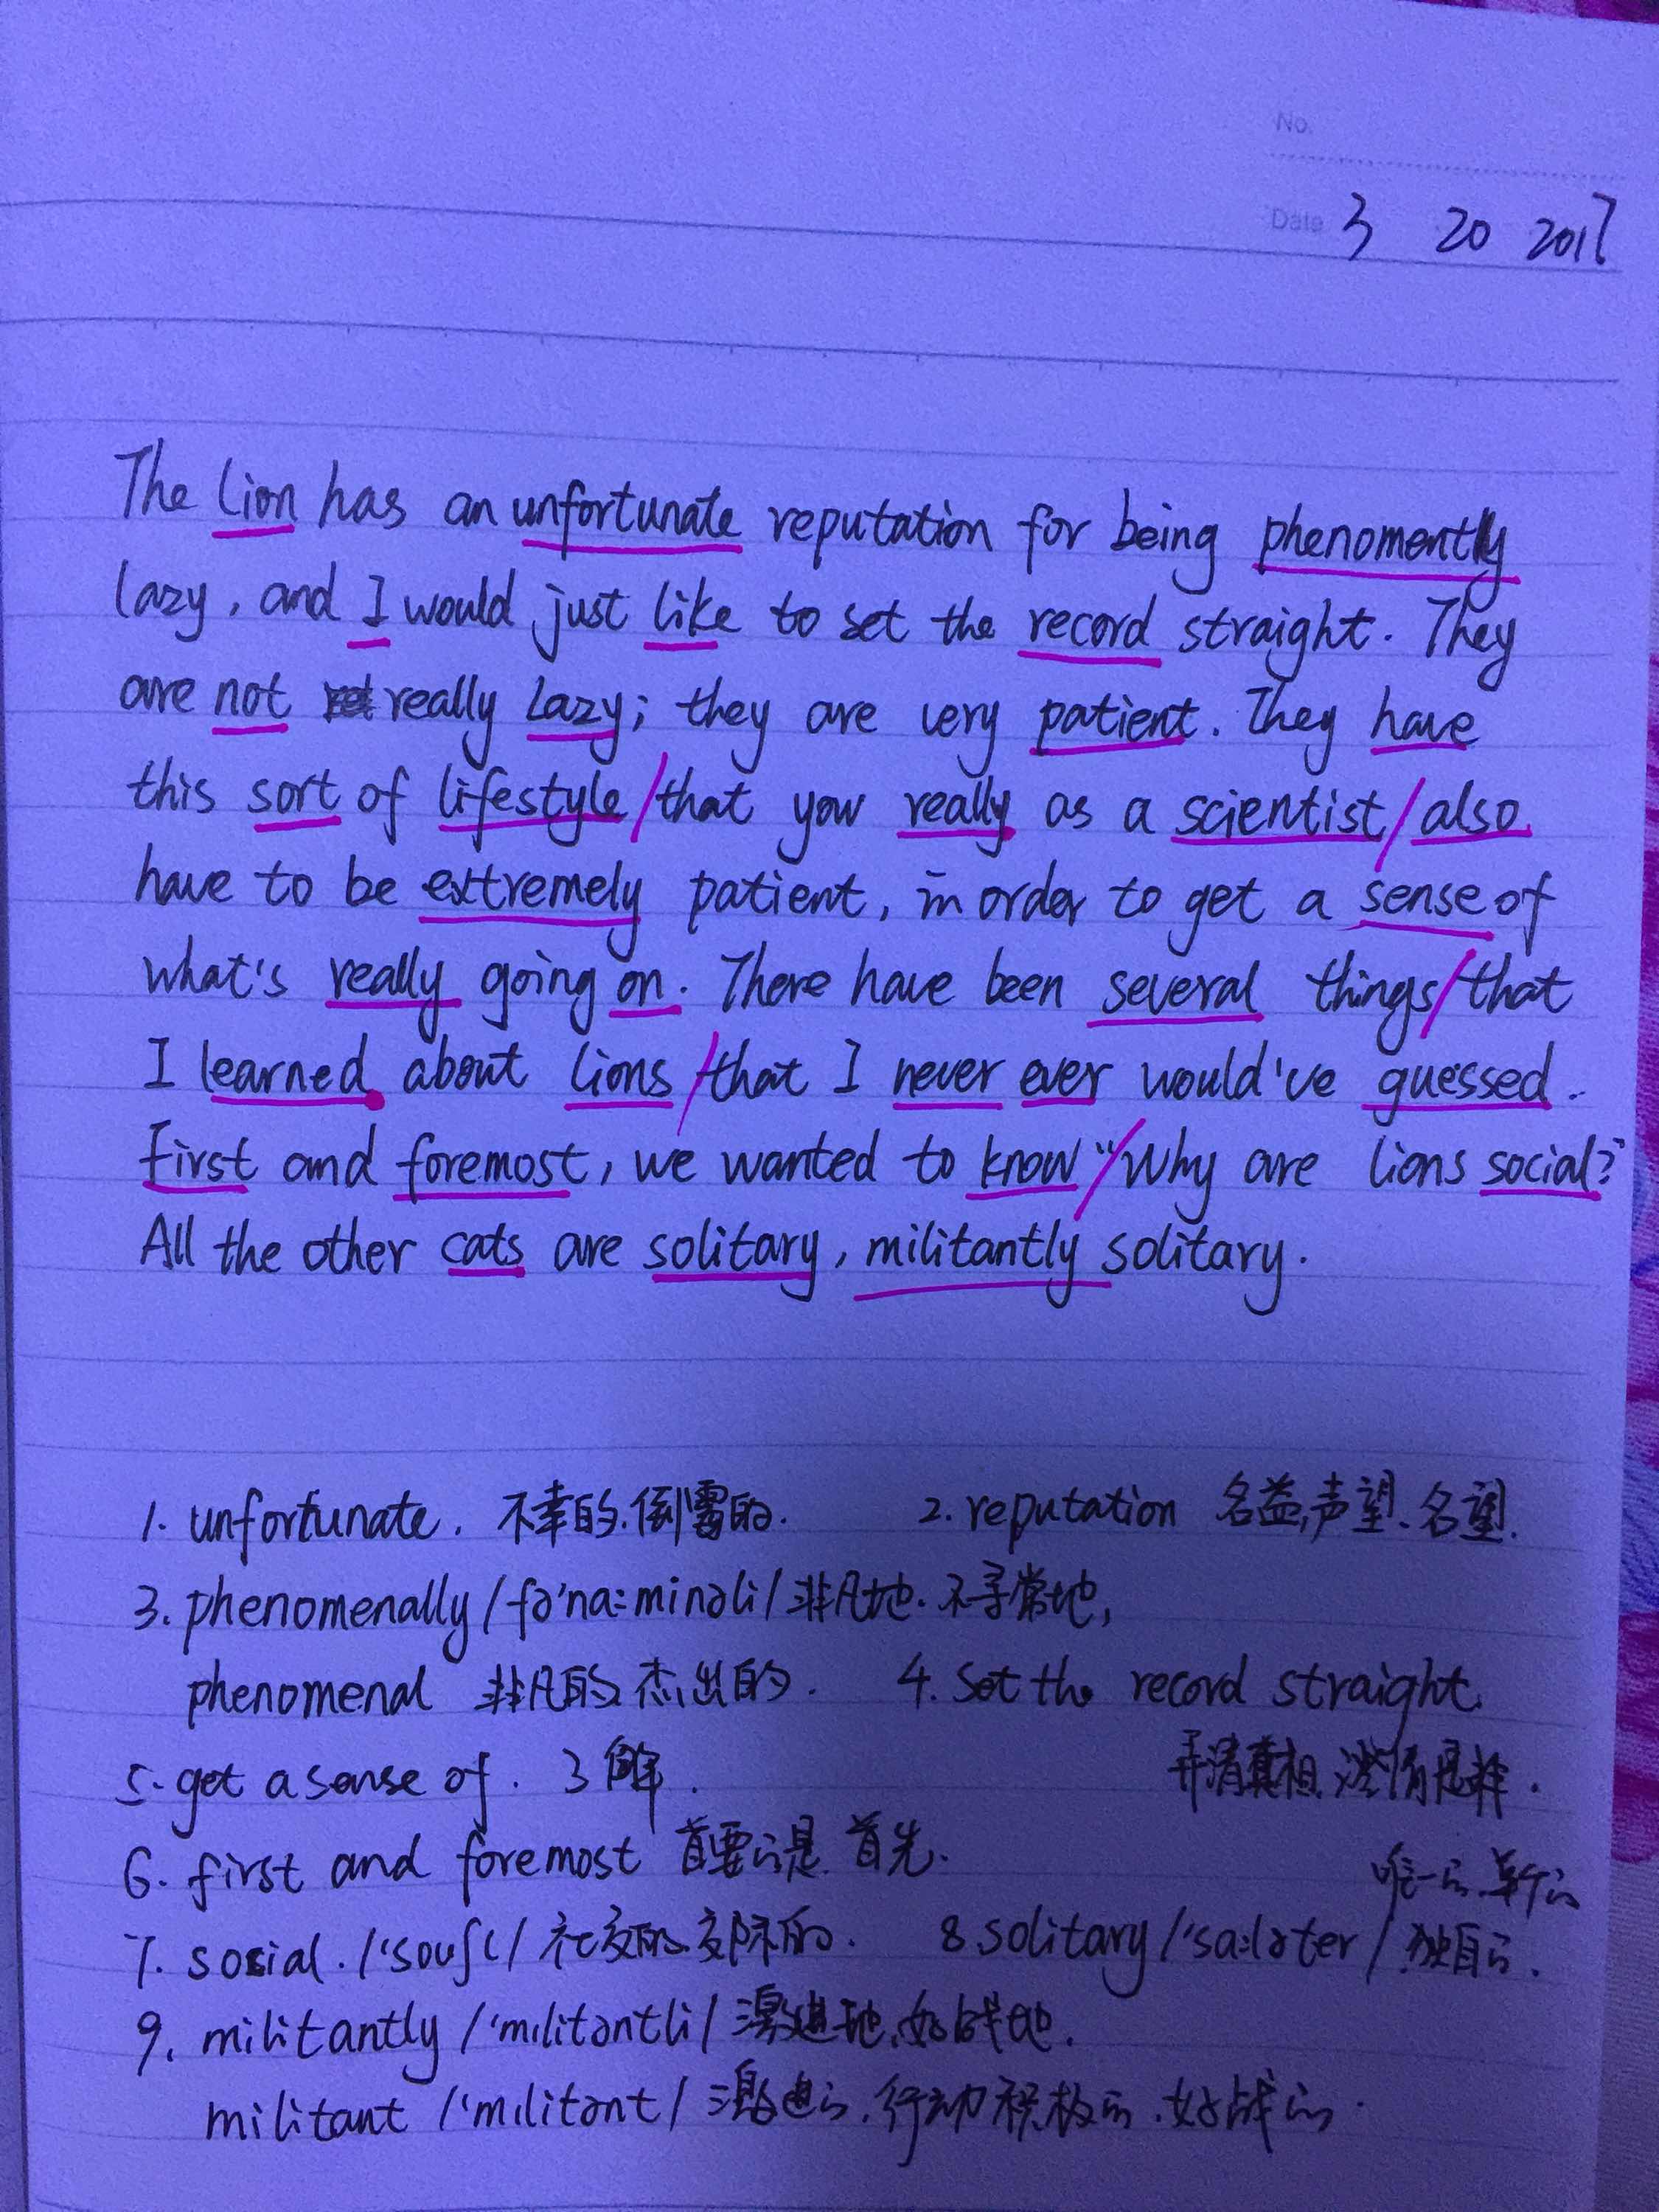 No.
Date 3 20 2017
The Lion has an unfortunate reputation for being phenomently
lazy, and I would just like to set the record straight. They
are not really lazy; they are very patient. They have
this sort of lifestyle/that you really as a scientist/also
have to be extremely patient, in order to get a sense of
what's really going on. There have been several things/that
I learned about lions/that I never ever would've guessed.
First and foremost, we wanted to know "/Why are lions social?"
All the other cats are solitary, militantly solitary.
1. unfortunate. 不幸的.倒霉的. 2. reputation 名益,声望、名望.
3. phenomenally /fə'na:minəli/ 非凡地.不寻常地,
phenomenal 非凡的 杰出的. 4. Set the record straight.
5. get a sense of. 了解. 弄清真相,
6. first and foremost 首要的是 首先.
唯一的.单个的
7. social. /'souʃl/ 社交的 交际的. 8. solitary /'sa:ləter/ 独自的.
9. militantly /'militəntli/ 激进地.好战地.
militant /'militənt/ 激进的.行动积极的.好战的.